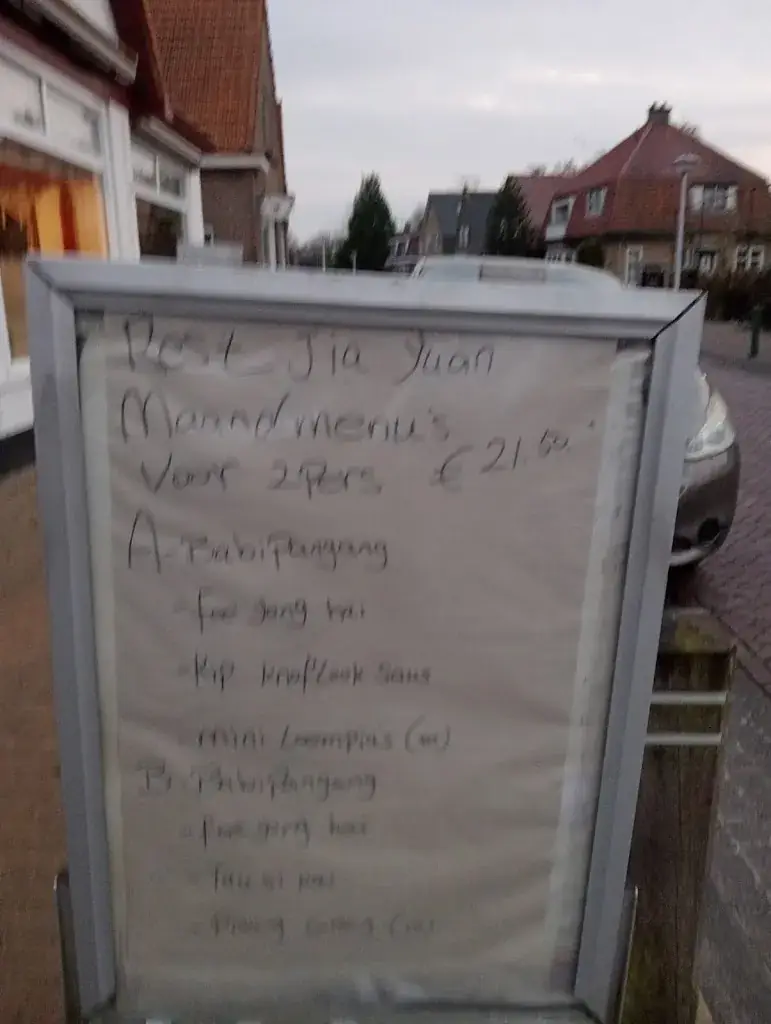 Rest Jia Yuan
Maandmenu's
Voor 2 Pers € 21.50.
A - Babi Pangang
- foe yong hai
- Kip Knoflook Saus
- mini Loempias
B - Babi Pangang
- foe yong hai
- Tau si kai